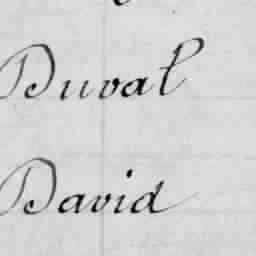 Duval
David